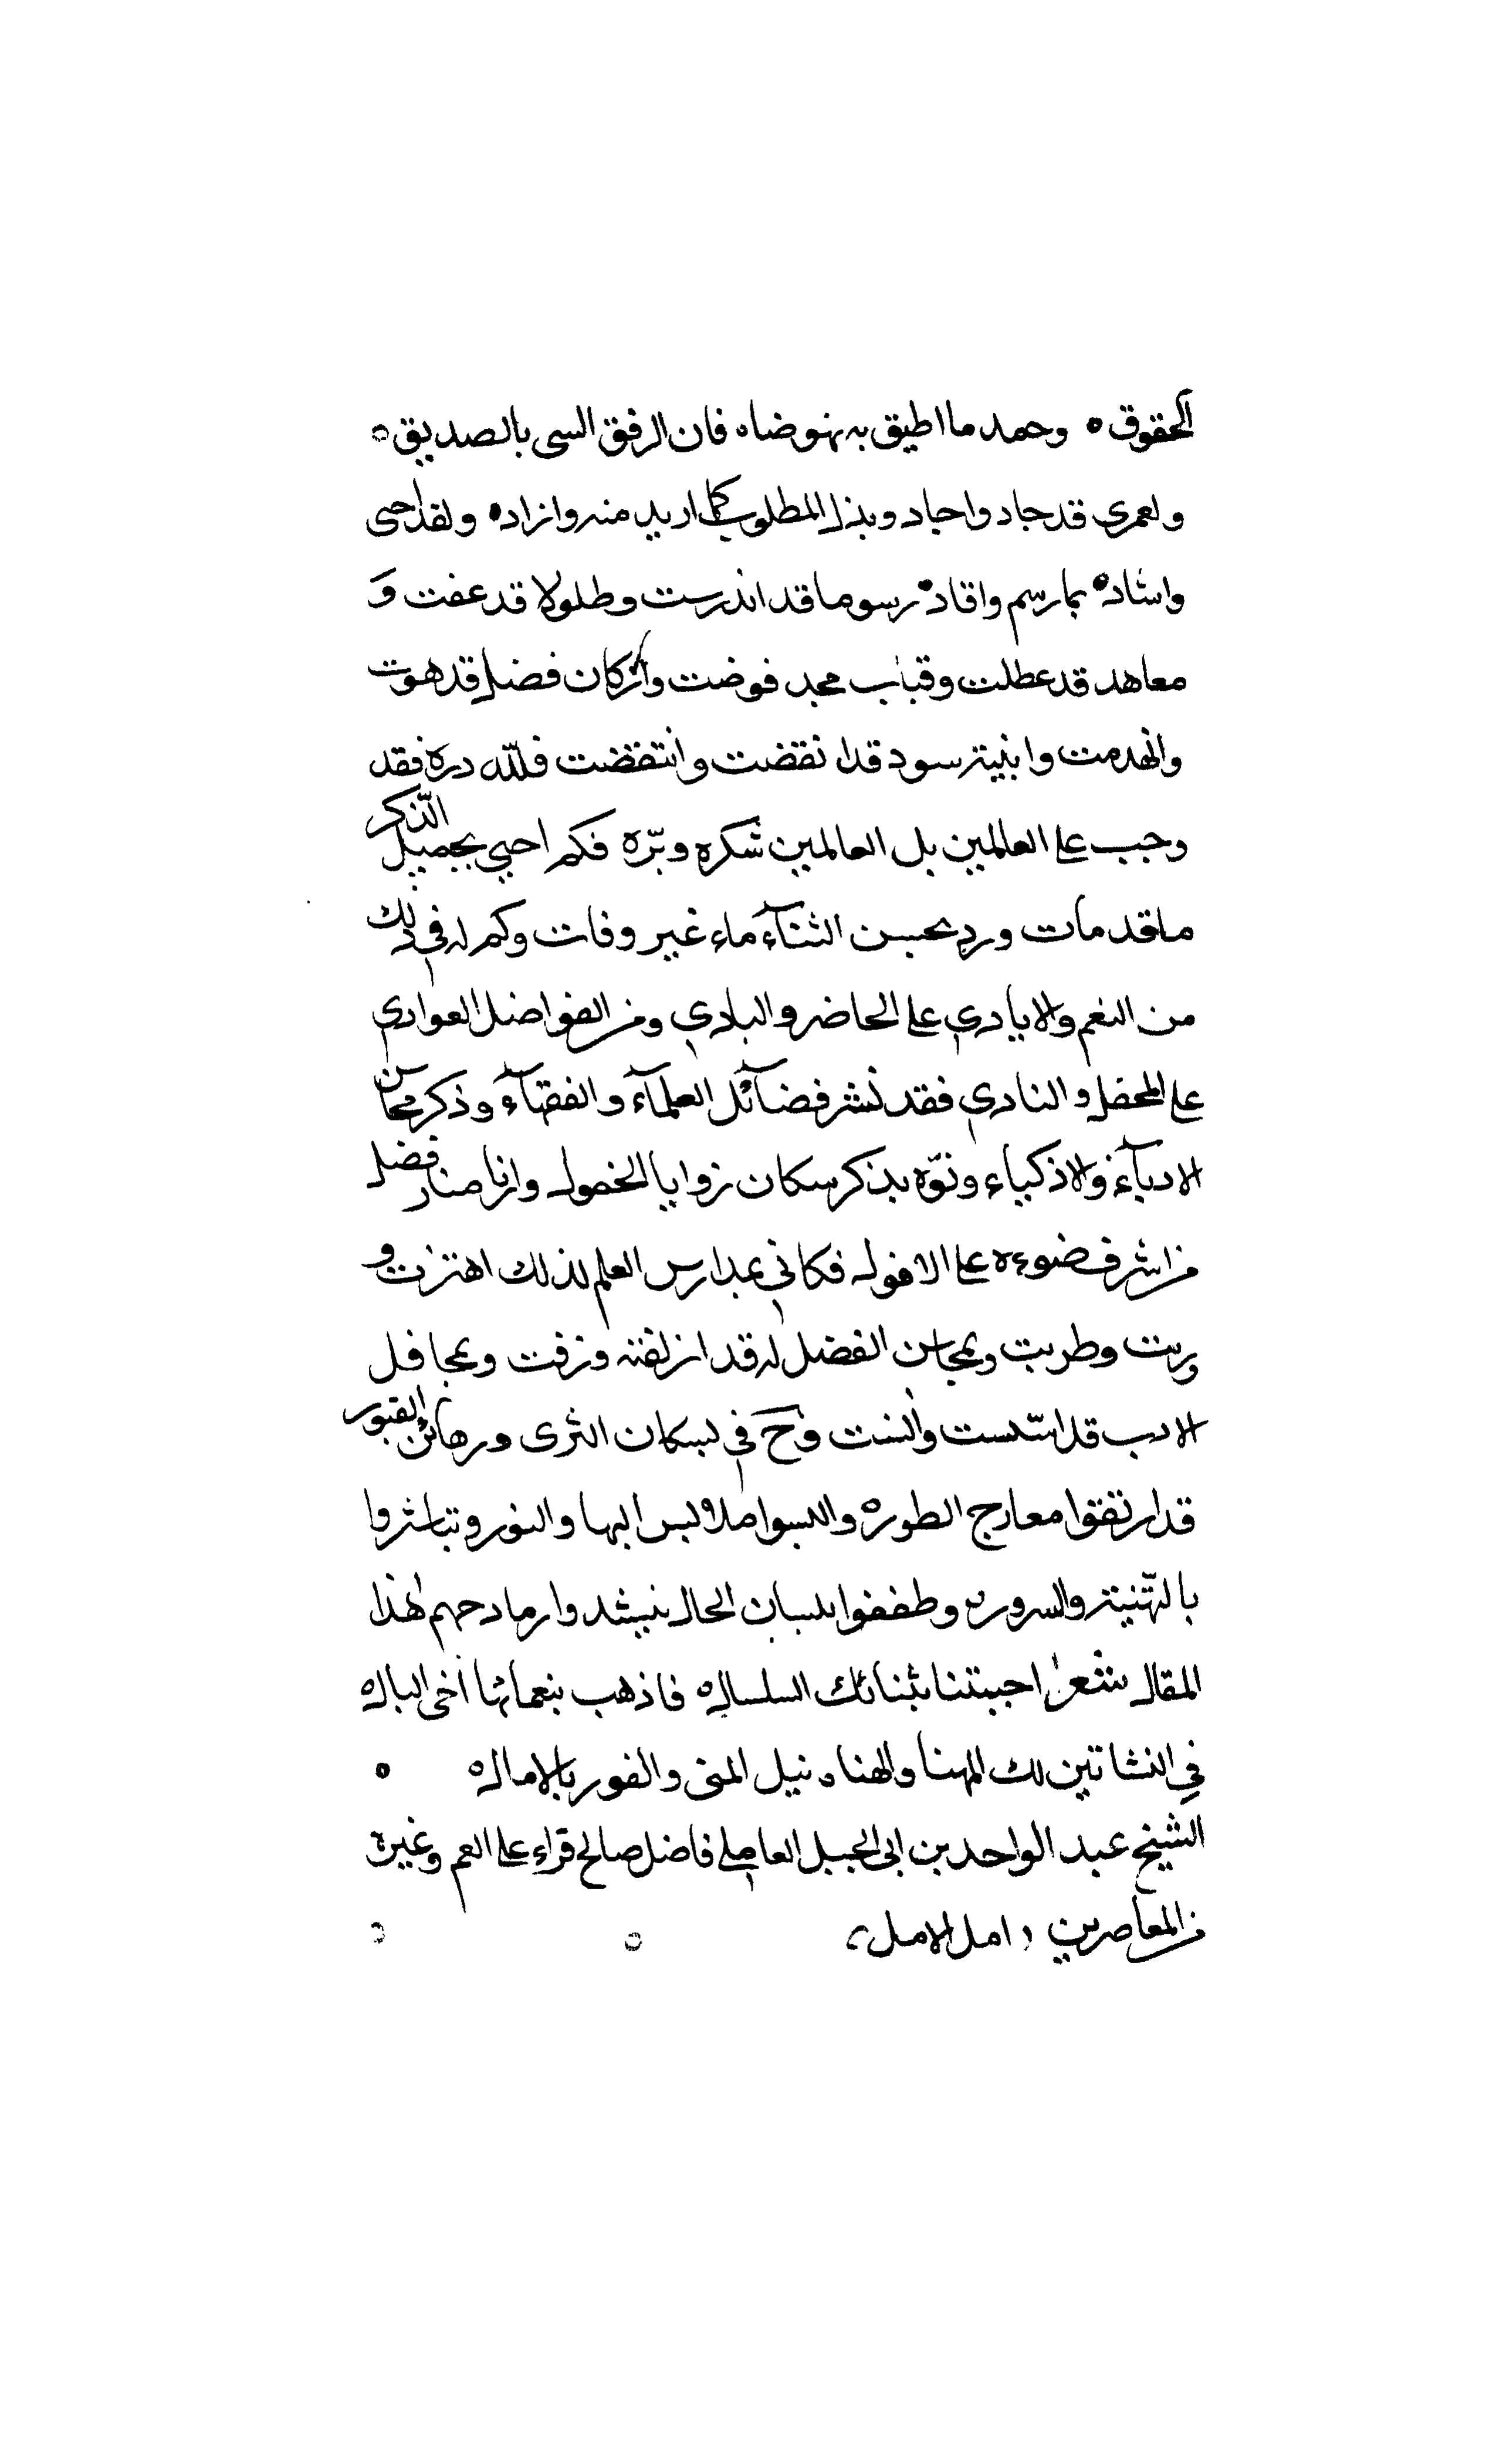 الحقوق ٥ وحمد ما اطيق به نهوضا٥ فان الرفق السى بالصديق ٥
ولعمري قد جاد واجاد وبذل المطلوب كما اريد منه وازاد٥ ولقد احيى
واشاد٥ بما رسم وافاد٥ رسوما قد اندرست وطلولا قد عفت وَ
معاهد قد عطلت وقباب مجد فوضت واركان فضل قد هوت
وانهدمت وابنية سود قد انقضت وانتقضت فللّه دره فقد
وجب على العالمين بل العالمين شكره وبّره فكم احيى بجميل الذّكر
ما قد مات ورد بحسن الثنآء ماء غبر وفات وكم له في ذلك
من النعم والايادي على الحاضر والبادي ومن الفواضل العوادي
على المحفل والنادي فقد نشر فضآئل العلمآء والفقهآء وذكر محاسن
الادبآء والاذكياء ونوّه بذكر سكان زوايا الخمول وانار منار فضل
من اشرف ضوءه على الافول فكاني بمدارس العلم لذلك اهتزت و
ربت وطربت وبمجاسن الفضل له قد ازلفته وزفت وبمحافل
الادب قد اسّست وانست وح في لسكان الثرى ورهائن القبور
قد ارتفقوا معارج الطور٥ والبسوا ملابس البها والنور وتباشروا
بالتّهنية والسرور٥ وطفقوا بلسان الحال ينشد وا رمادحهم لهذا
المقال شعر احييتنا بثنائك السلسال٥ فاذهب بنعمائها اخى البال٥
في النشاتين لك المهنا والهنا٥ نيل المنى والفور بالامال٥ ٥
الشيخ عبد الواحد بن ابى الجبل العاملي فاضل صالح قراء على العم وغيره
من المعاصرين (امل الامل)